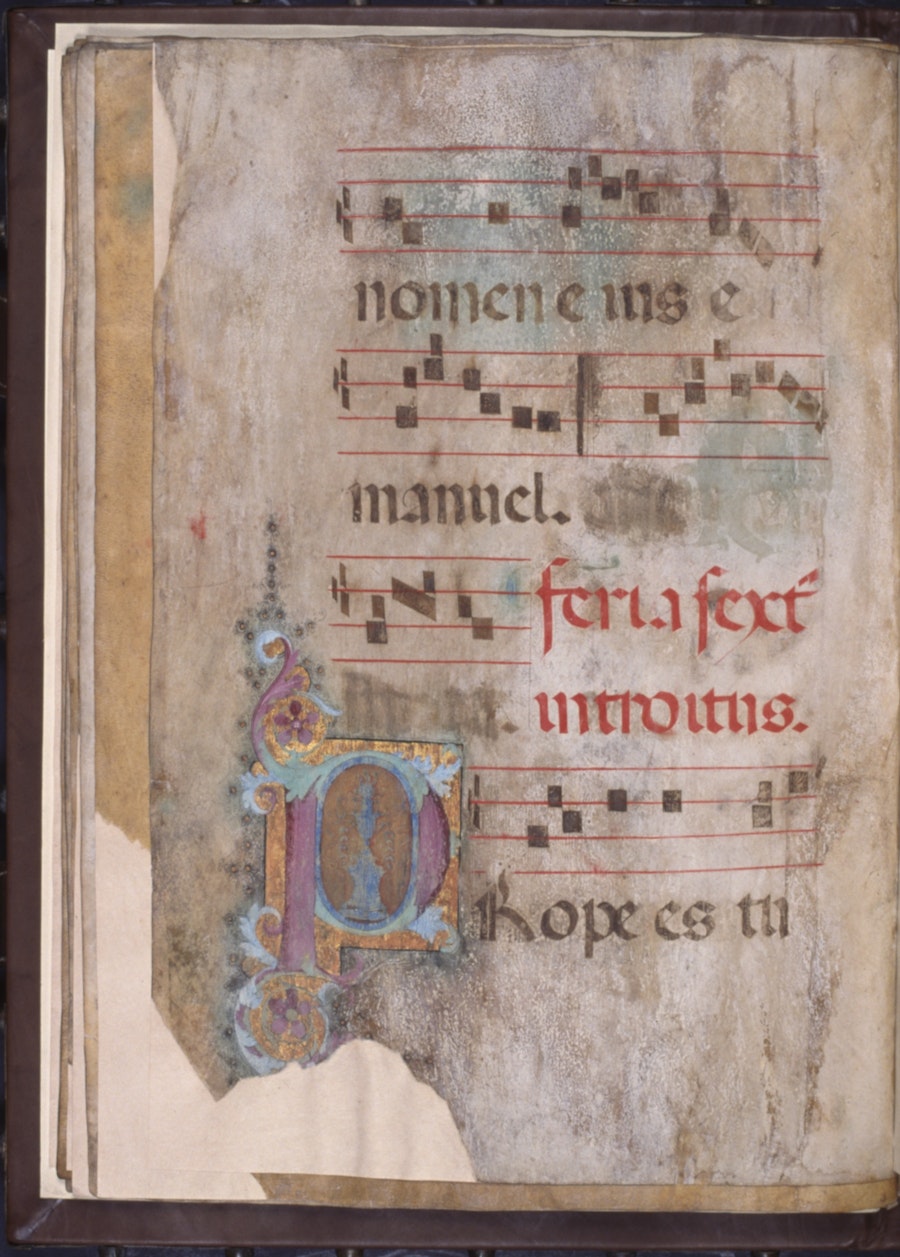 nomen e ius e
manuel.
feria sext
introitus.
PRope es tu